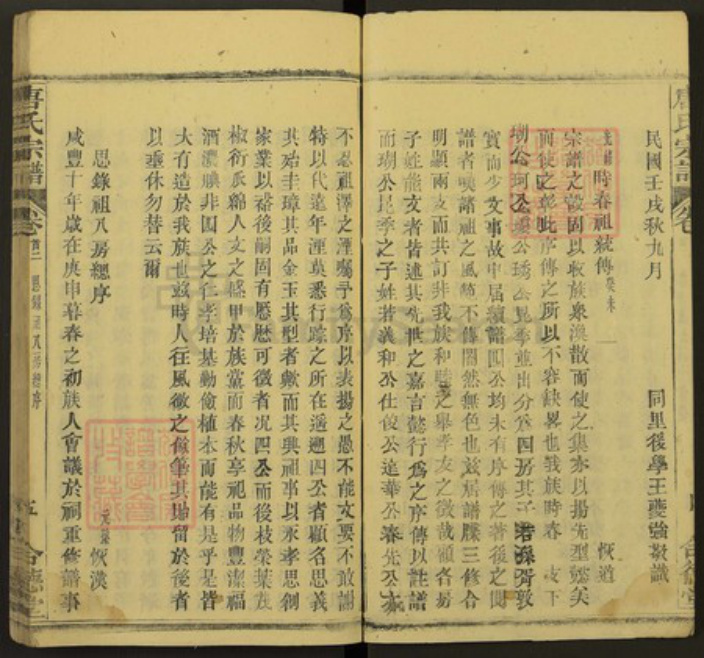 民國壬戌秋九月　同里後學王夔強敬識
時春祖統傳　恢道
宗譜之設固以收族衆渙散而使之集亦以揚先型懿美
而使之彰此序傳之所以不容缺畧也我族時春 皮下
瑚公珂公 公琇公昆季並出分爲四房其子若孫胥敦
實而少文事故中屆續譜四公均未有序傳之著後之閱
譜者嘆諸祖之風範不傳闇然無色也玆居譜牒三修合
明顯兩支而共訂非我族和睦之舉孝友之徵哉顧各房
子姓能文者皆述其先世之嘉言懿行爲之序傳以註譜
而瑚公昆季之子姓若義和公仕俊公達華公春先公亦
不忍祖澤之湮囑予爲序以表揚之愚不能文要不敢謝
特以代遠年湮莫悉行踪之所在遞遡四公者顧名思義
其殆圭璋其品金玉其型者歟而其興祖事以永孝思剏
家業以裕後嗣固有歷歷可徵者况四公而後枝榮葉茂
椒衍瓜綿人文之盛甲於族黨而春秋享祀品物豐潔福
酒濃膰非四公之仁孝培基勤儉植本而能有是乎是皆
大有造於我族也玆時人往風微之餘筆其 留於後者
以垂休勿替云爾
元 恢漢
思錄祖八房總序
咸豐十年歲在庚申暮春之初族人會議於祠重修譜事
唐氏宗譜　卷首二　思錄祖八房總序　五　合德堂